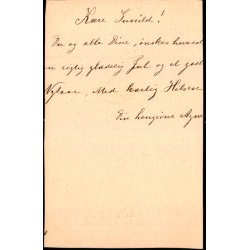 Kære Sinvild!
Du og alle Dine, ønskes herved
en rigtig glædelig Jul og et godt
Nytaar, Med kærlig Hilsen
Din hengivne Agn